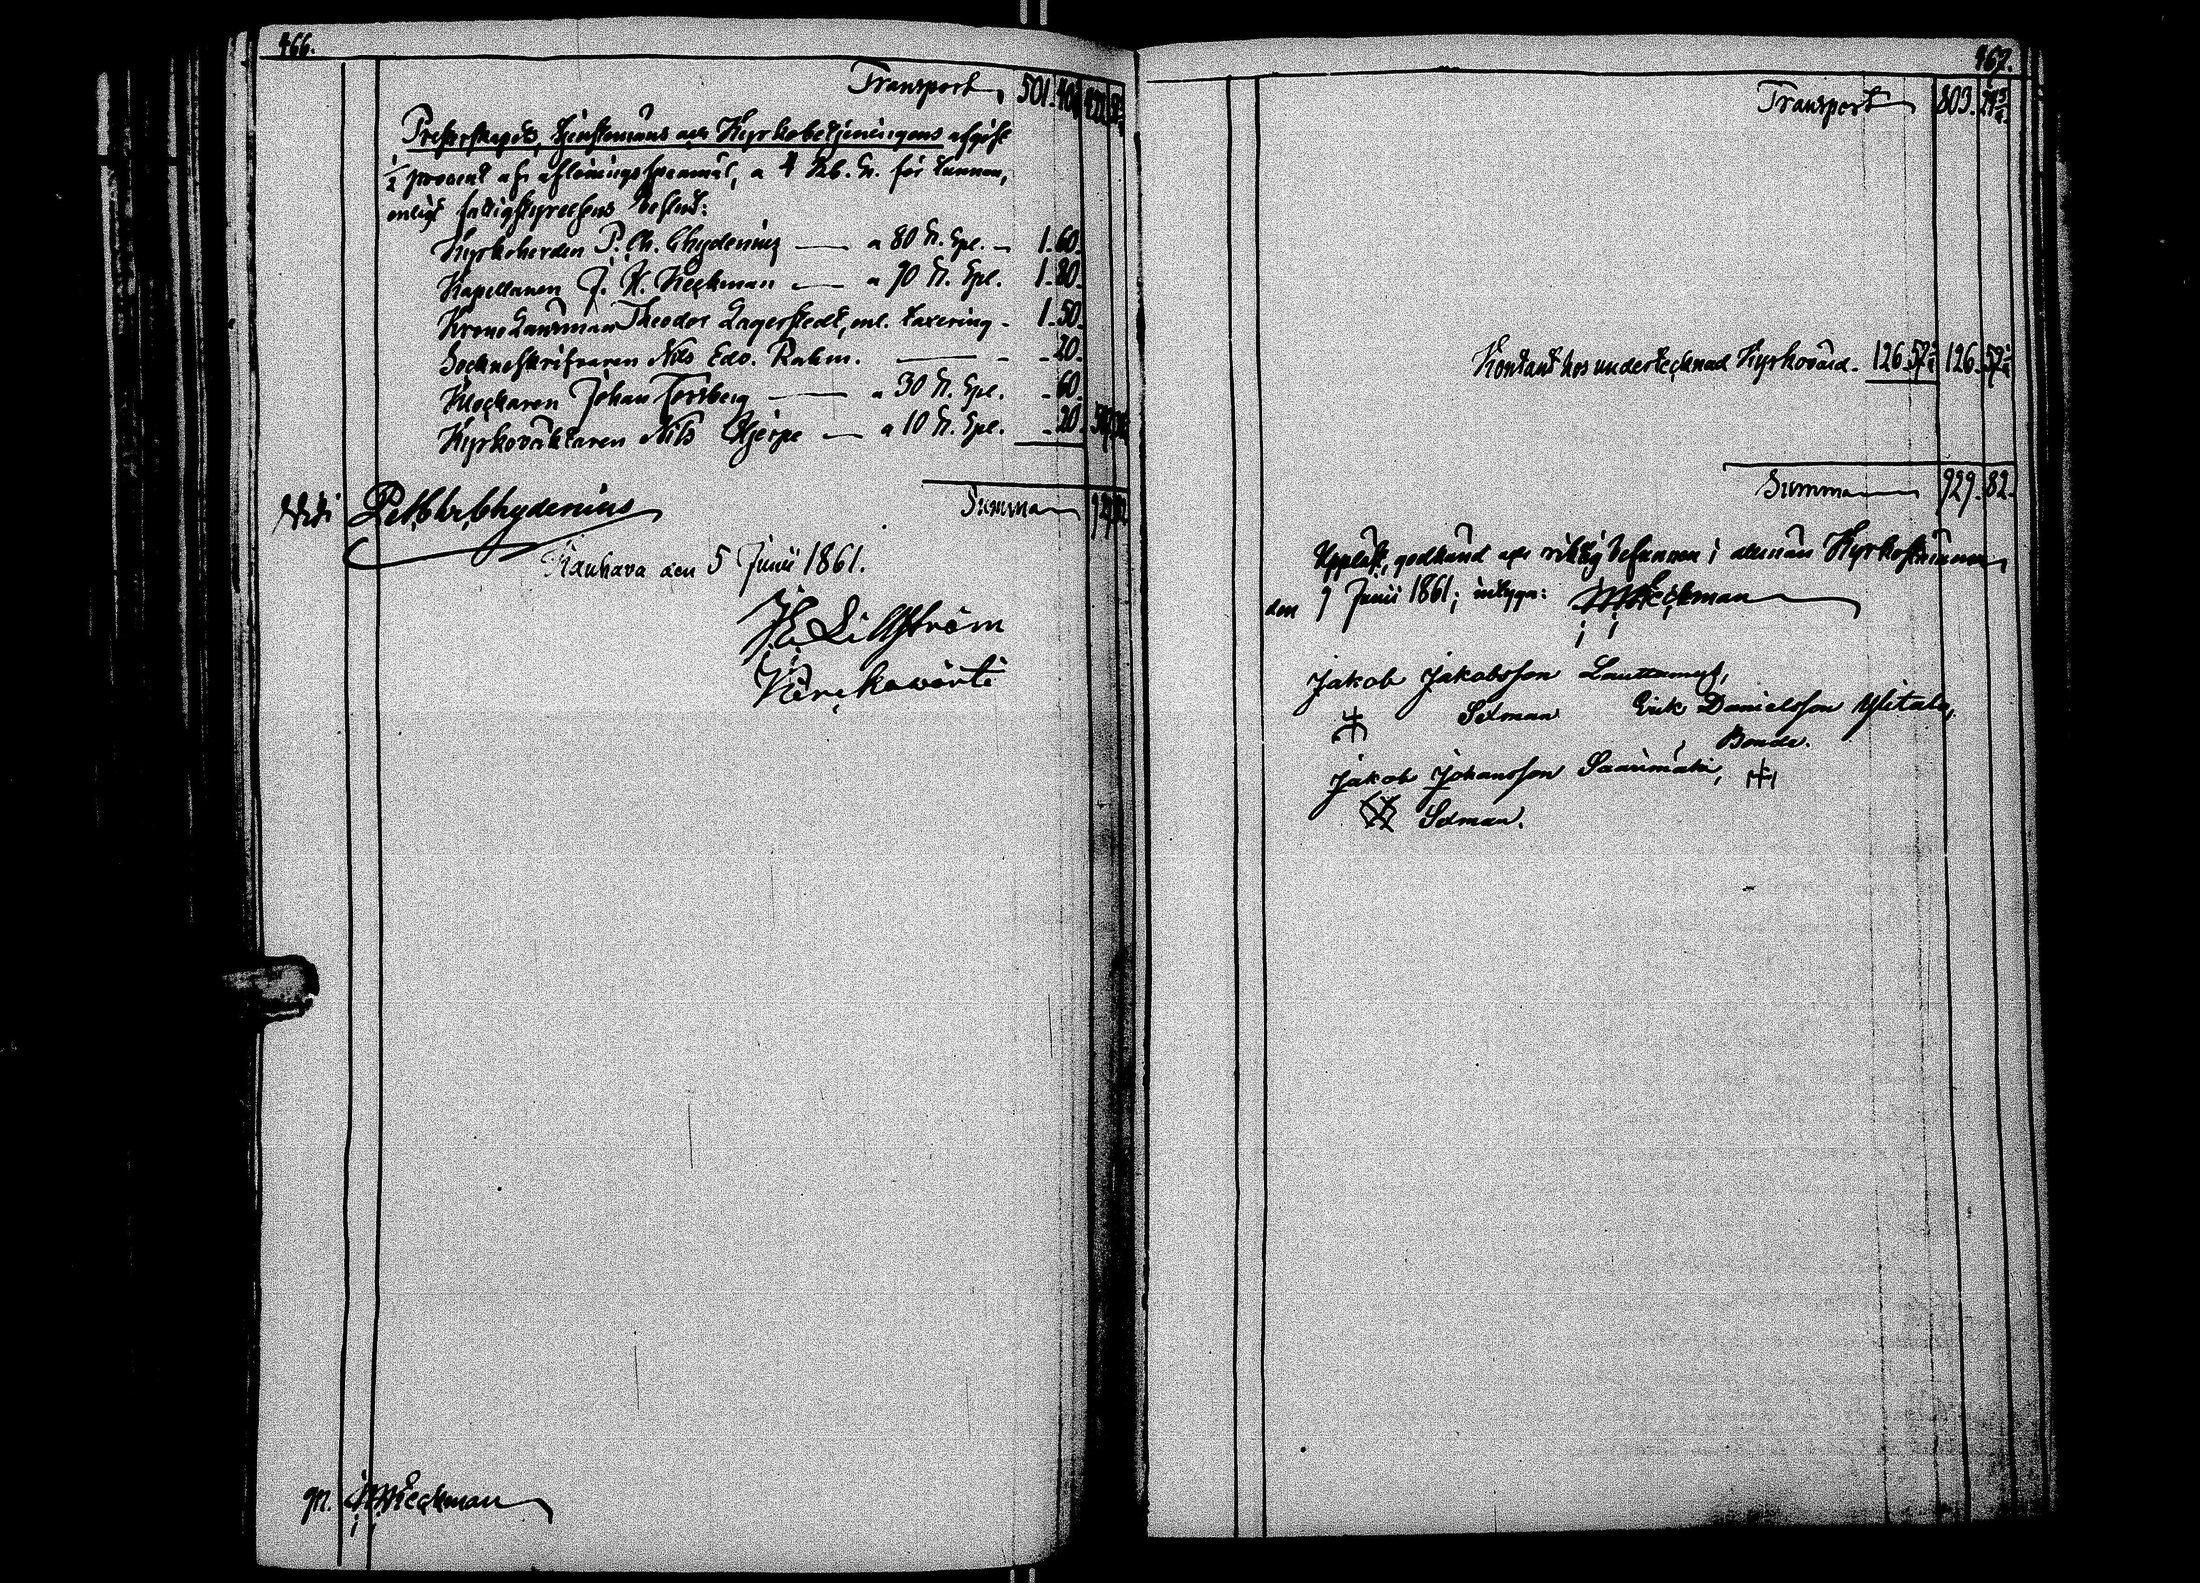 466.
Transport, 501. 40
Presterskapets, tjenstemäns och Kyrkobetjeningens afgift
½ procent af aflöningsspanmål, a 4 Rb. Sr. för tunnan,
enligt fattigstyrelsens beslut:
Kyrkoherden P. Ch. Chydenius — a 80 tr. Spl. — 1. 60.
Kapellanen J. H. Heckman — a 90 tr. Spl. 1. 80.
Krono Länsman Theodor Lagerstedt, enl. taxering - 1. 50.
Sockneskrifvaren Nils Edv. Rahm. — - - 20.
Klockaren Johan Forsberg — a 30 tr. Spl. - 60.
Kyrkoväktaren Nils Skjerpe — a 10 tr. Spl. - 20.
Vidi Pet. Chr. Chydenius Summa
Kauhava den 5 Junii 1861.
Lillström
Kirckowärti
gn. Heckman
467.
Transport 803. 24¾.
Kontant hos undertecknad Kyrkovärd. 126. 57¼ 126. 57¼
Summa 929. 82.
Uppläst, godkänd och riktig befunnen i allmän Kyrkostämma
den 9 Junii 1861; intyga: Heckman
Jakob Jakobsson Lauttamus,
Sexman Erik Danielsson Ylitalo,
Bonde.
Jakob Johansson Saarimäki,
Sexman.